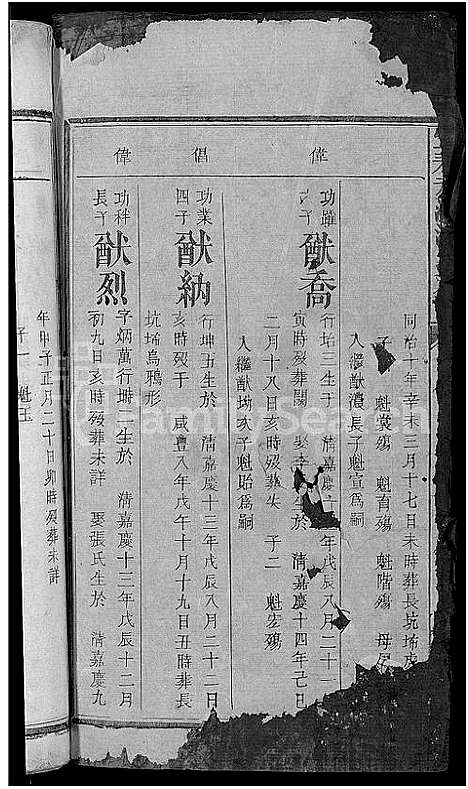 偉 倡 偉
同治十年辛未三月十七日未時葬長坑垇
子 魁裳殤 魁育殤 魁階殤 母
入繼猷濃長子魁宣爲嗣
功
猷喬
行坮三生于 清嘉慶十 年戊辰八月二十一
寅時歿葬關 娶李 於 清嘉慶十四年己巳
二月十八日亥時歿葬失 子二 魁宏殤
入繼猷坳次子魁貽爲嗣
功業四子
猷納
行坤五生於 清嘉慶十三年戊辰八月二十二日
亥時歿于 咸豐八年戊午十月十九日丑時葬長
坑塆烏鴉形
功秤長子
猷烈
字炳萬行坤二生於 清嘉慶十三年戊辰十二月
初九日亥時歿葬未詳 娶張氏生於 清嘉慶九
年甲子正月二十日卯時歿葬未詳
子一 魁玉
FamilySearch